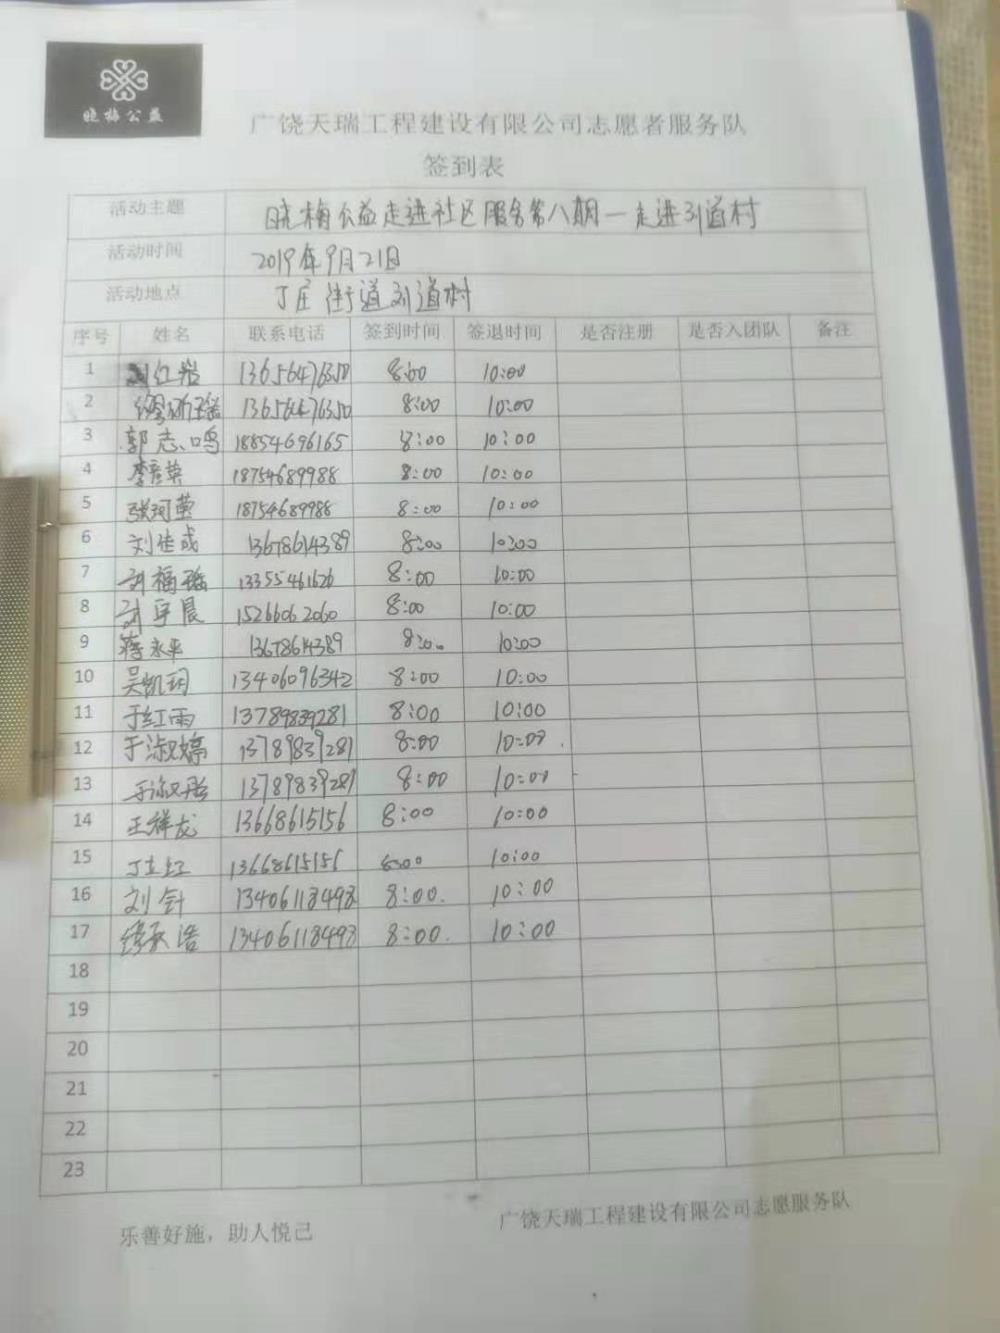 晓梅公益
广饶天瑞工程建设有限公司志愿者服务队
签到表
活动主题 晓梅公益走进社区服务第八期—走进刘道村
活动时间 2019年9月21日
活动地点 丁庄街道刘道村
序号 姓名 联系电话 签到时间 签退时间 是否注册 是否入团队 备注
1 刘红岩 13656476350 8:00 10:00
2 13656476350 8:00 10:00
3 郭志鸣 18854696165 8:00 10:00
4 李彦英 18754689988 8:00 10:00
5 张珂莹 18754689988 8:00 10:00
6 刘佳成 13678614389 8:00 10:00
7 刘福瑶 13355461626 8:00 10:00
8 刘宇晨 15266062060 8:00 10:00
9 蒋永平 13678614389 8:00 10:00
10 吴凯玥 13406096342 8:00 10:00
11 于红雨 13789839281 8:00 10:00
12 于淑婷 13789839281 8:00 10:00
13 于淑彤 13789839281 8:00 10:00
14 王祥龙 13668615156 8:00 10:00
15 丁立红 13668615156 8:00 10:00
16 刘针 13406118498 8:00 10:00
17 浩 13406118498 8:00 10:00
18
19
20
21
22
23
乐善好施，助人悦己 广饶天瑞工程建设有限公司志愿服务队